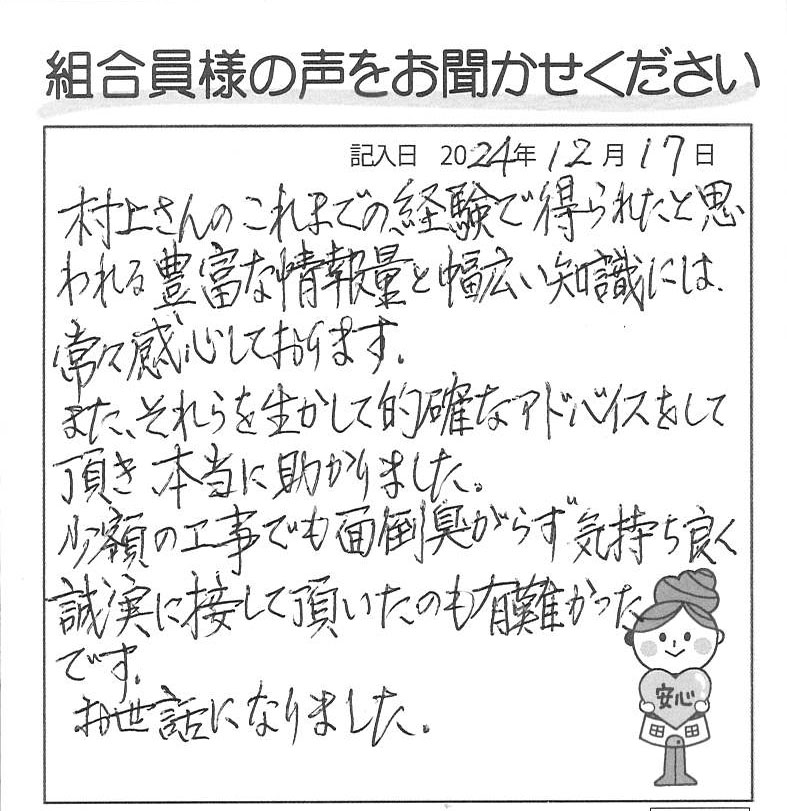 組合員様の声をお聞かせください
記入日 2024年 12月 17日
村上さんのこれまでの経験で得られたと思
われる豊富な情報量と幅広い知識には、
常々感心しております。
また、それらを生かして的確なアドバイスをして
頂き本当に助かりました。
少額の工事でも面倒臭がらず気持ち良く
誠実に接して頂いたのも有難かった
です。
お世話になりました。
安心